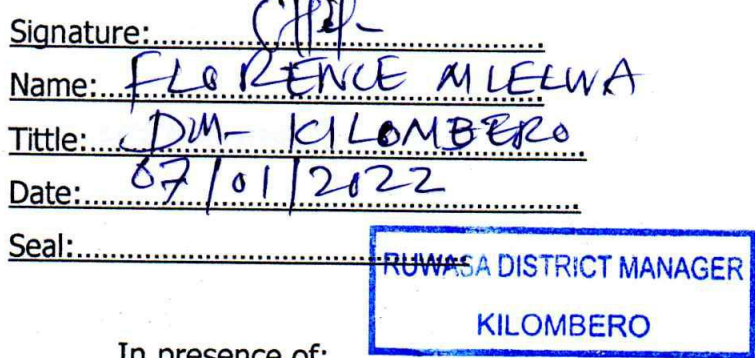 Signature:....................
Name: FLORENCE MLELWA
Tittle: DM- KILOMBERO
Date: 07/01/2022
Seal:....................
RUWASA DISTRICT MANAGER
KILOMBERO
In presence of: